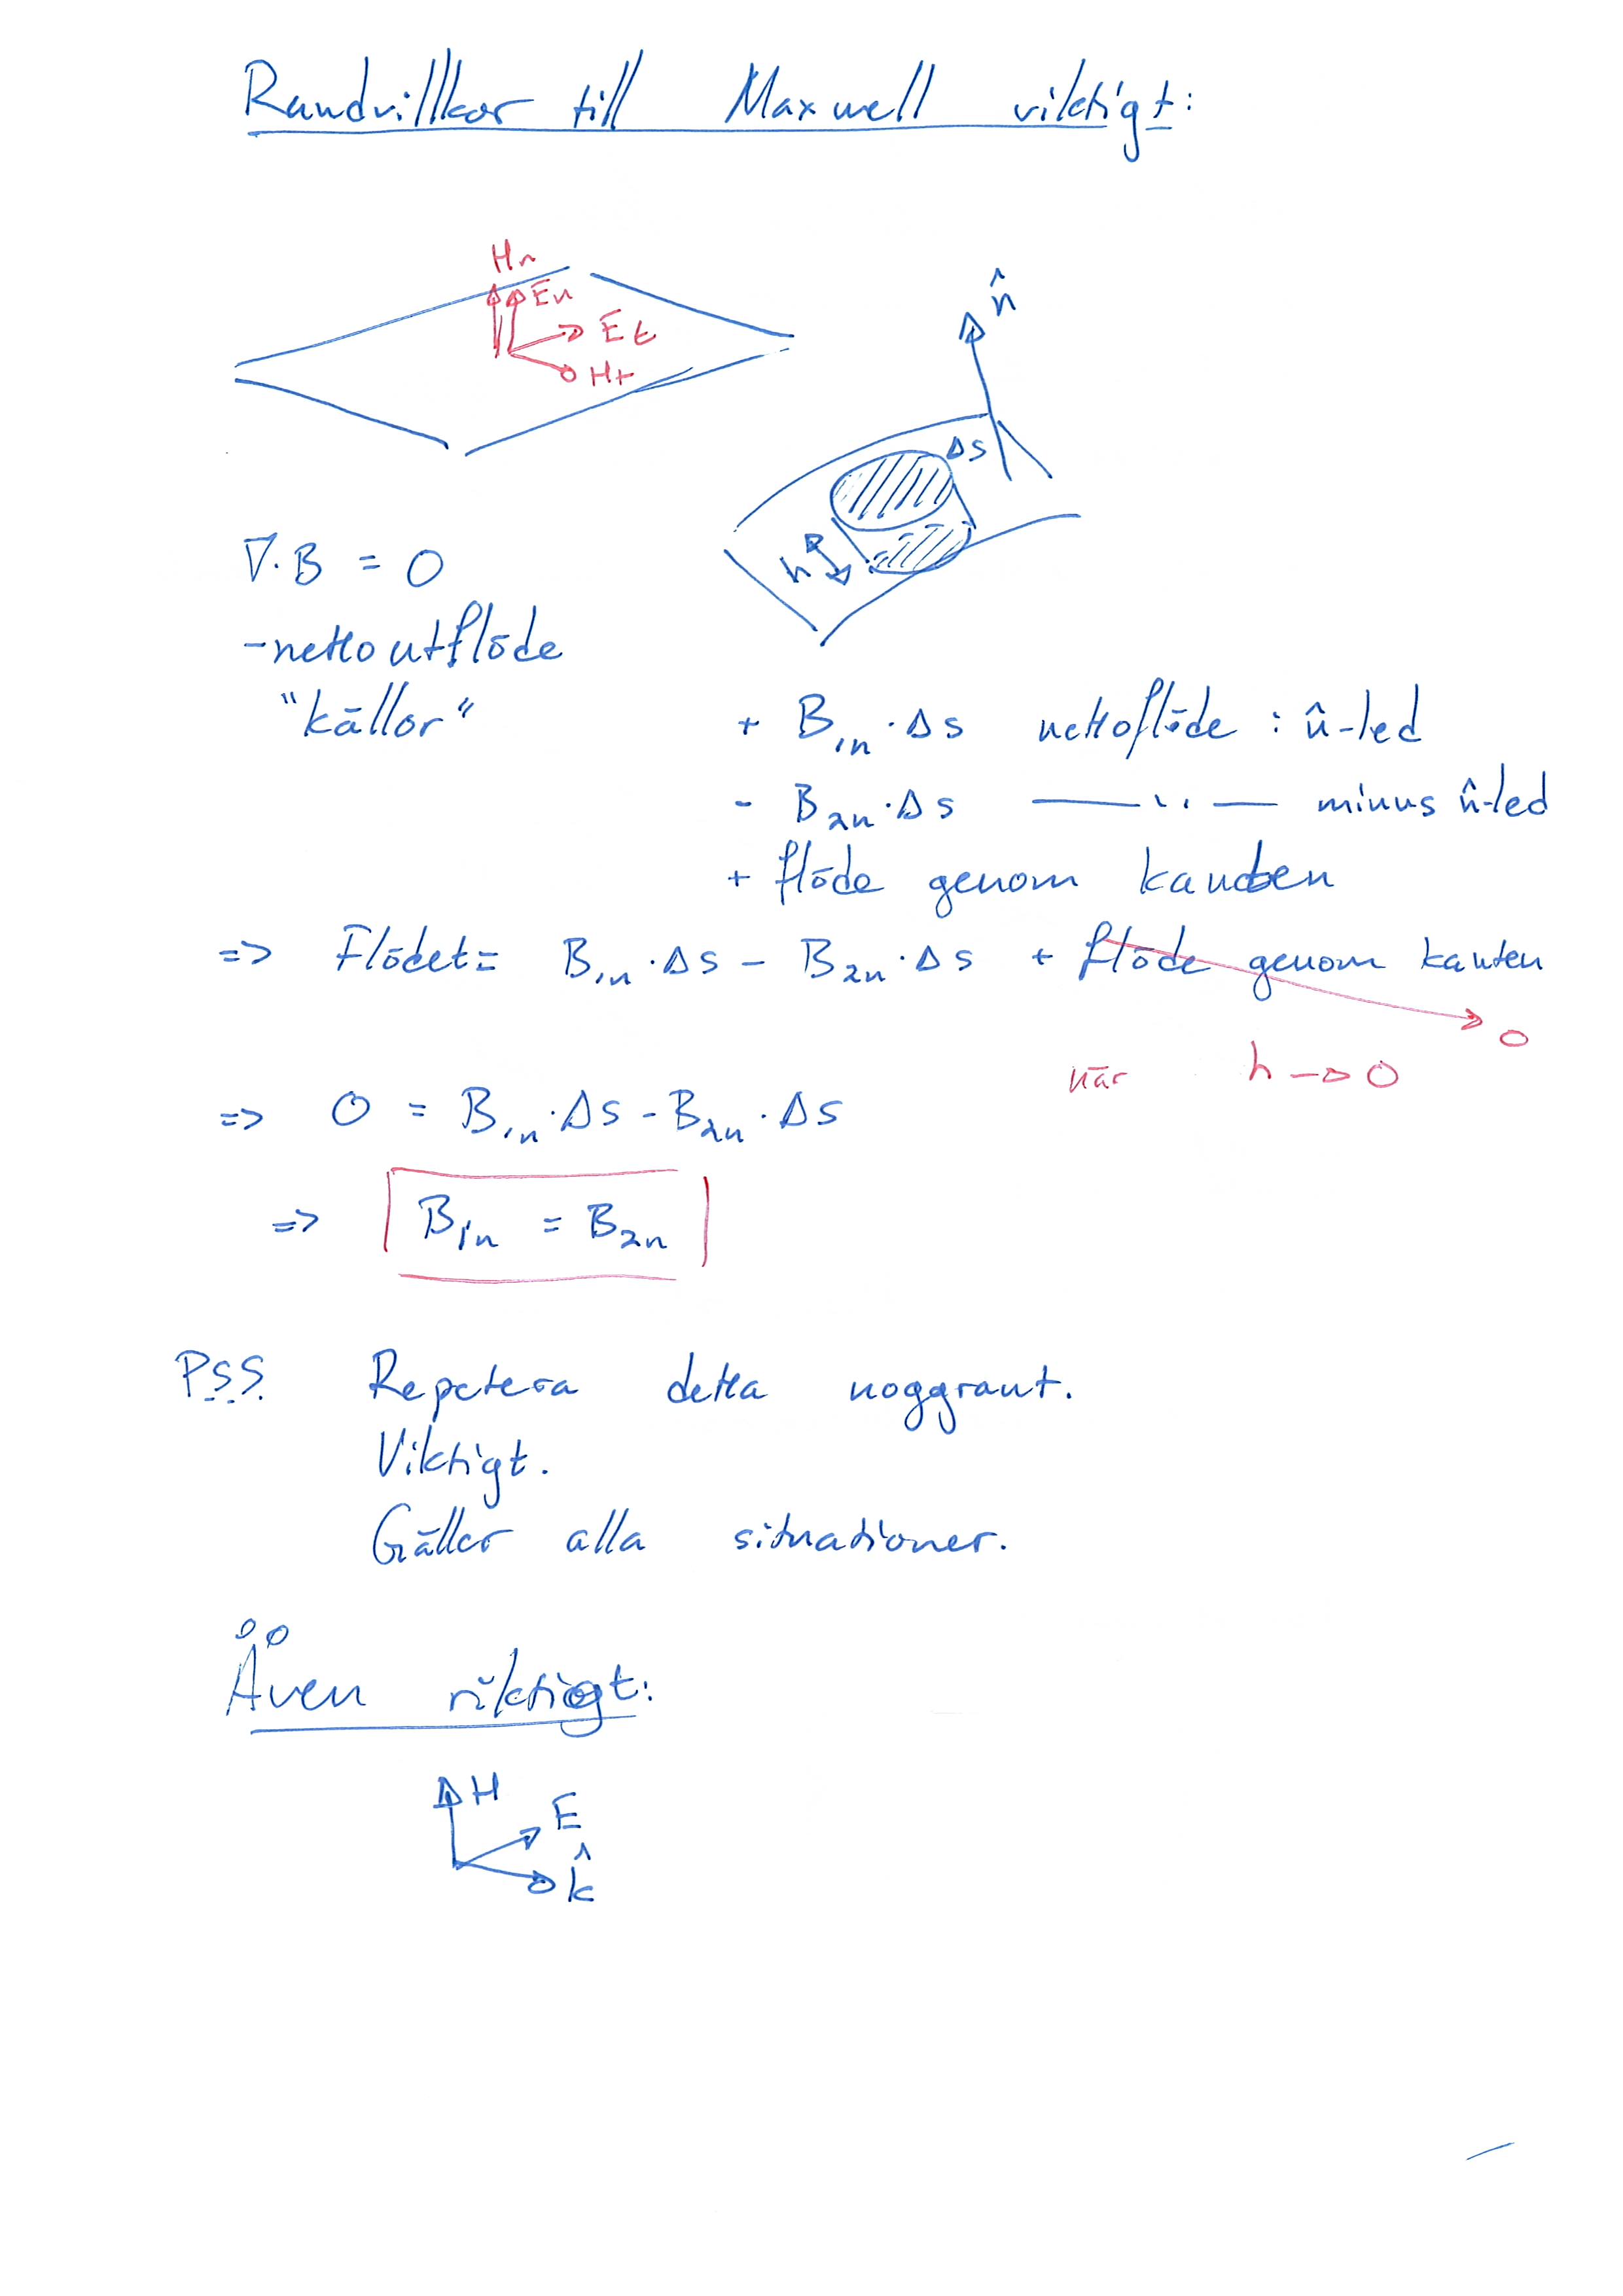 Randvillkor till Maxwell viktigt:
Hn
En
Et
Ht
n̂
Δs
h
∇·B = 0
-nettoutflöde
"källor"
+ B1n·Δs nettoflöde i n̂-led
- B2n·Δs —— '' — minus n̂-led
+ flöde genom kanten
=> Flödet = B1n·Δs - B2n·Δs + flöde genom kanten
0
när h → 0
=> 0 = B1n·Δs - B2n·Δs
=> B1n = B2n
P.S.S. Repetera detta noggrant.
Viktigt.
Gäller alla situationer.
Även viktigt:
H
E
k̂